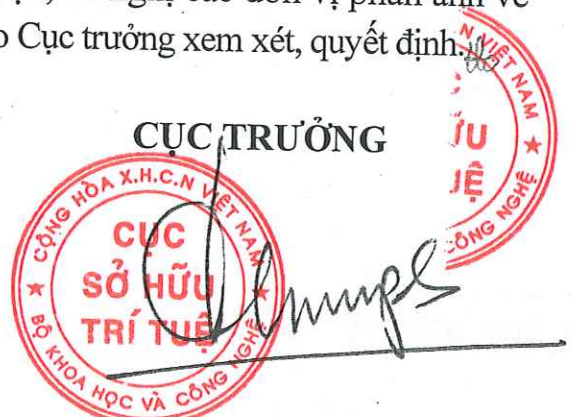 các đơn vị phản ánh về
Cục trưởng xem xét, quyết định.
CỤC TRƯỞNG
CỘNG HÒA X.H.C.N VIỆT NAM
CỤC
SỞ HỮU
TRÍ TUỆ
BỘ KHOA HỌC VÀ CÔNG NGHỆ
N VIỆT NAM
ỮU
UỆ
CÔNG NGHỆ